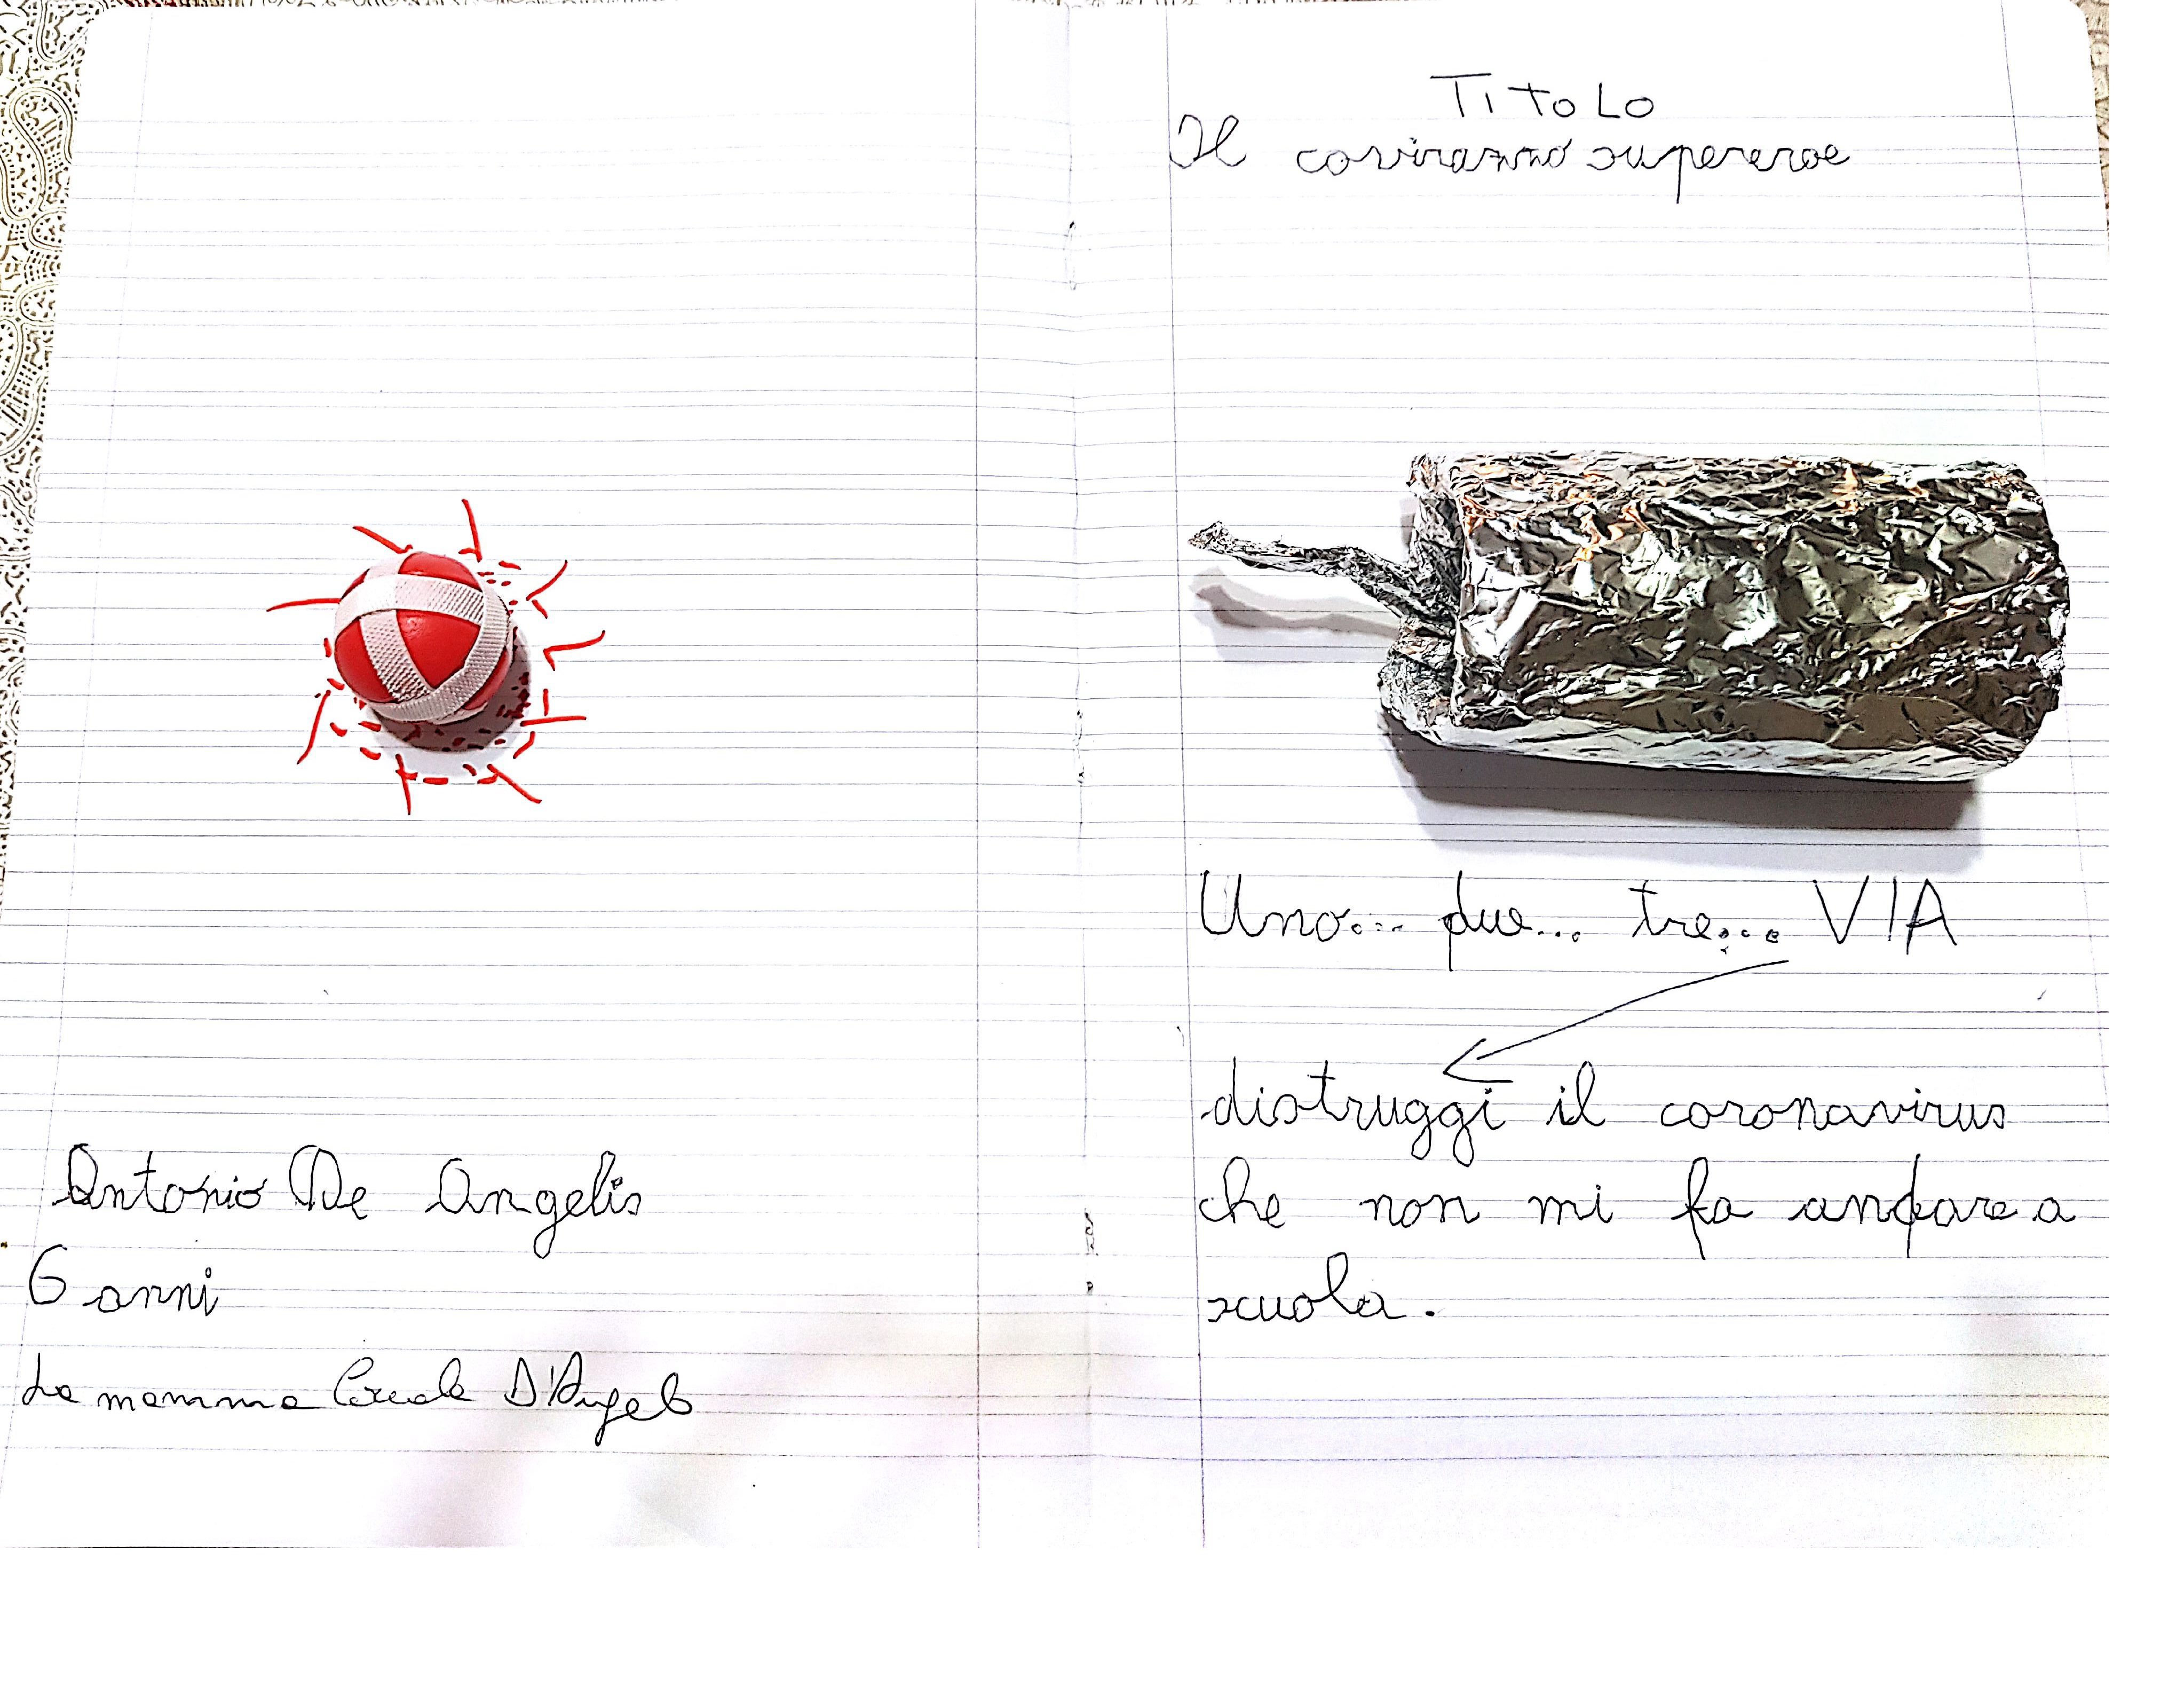 Antonio De Angelis
6 anni
La mamma D'Angelo
TiToLo
Il supereroe
Uno... due... tre... VIA
distruggi il coronavirus
che non mi fa andare a
scuola.